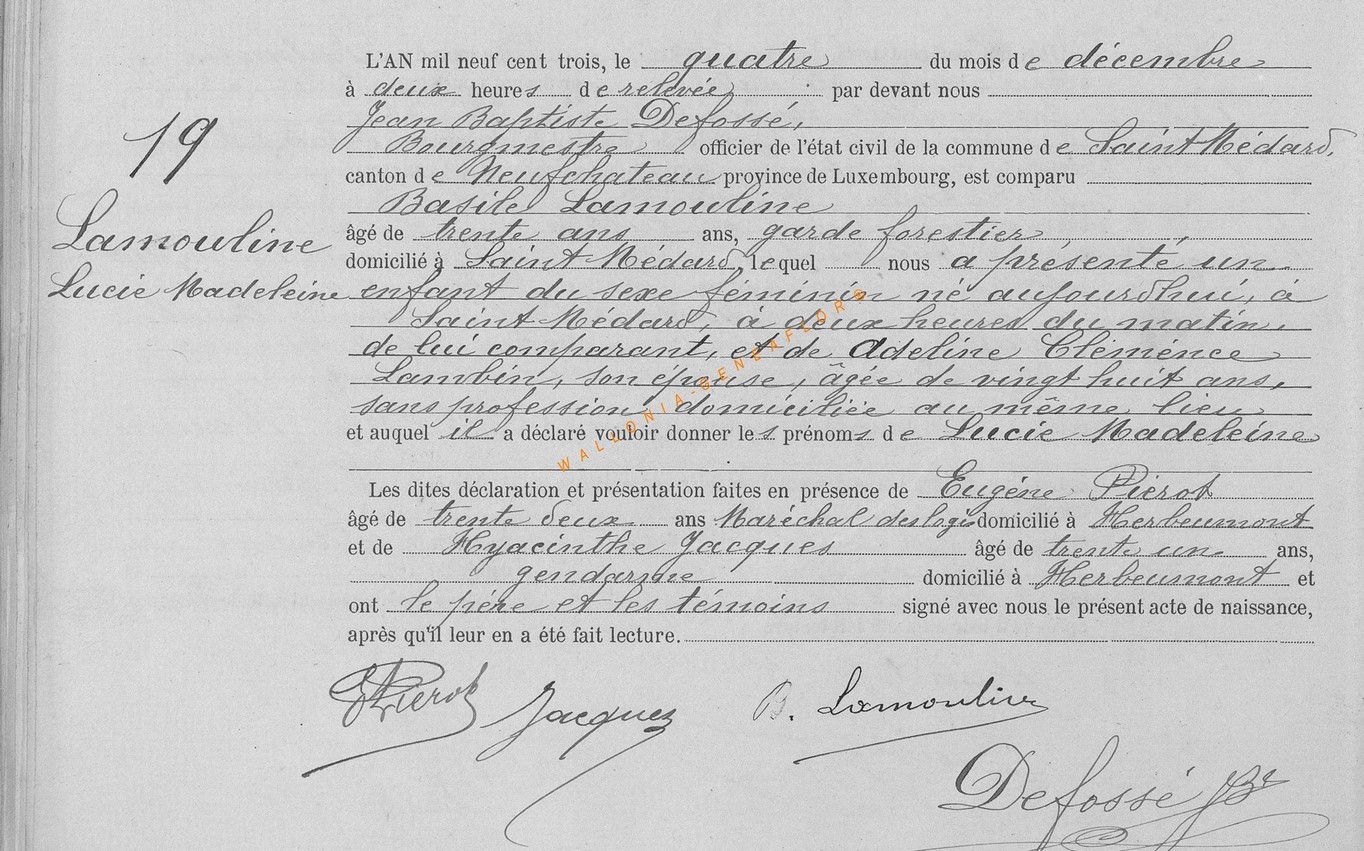 19
Lamouline
Lucie Madeleine
L'AN mil neuf cent trois, le quatre du mois de décembre
à deux heures de relevée, par devant nous
Jean Baptiste Defossé,
Bourgmestre officier de l'état civil de la commune de Saint Médard,
canton de Neufchateau province de Luxembourg, est comparu
Basile Lamouline
âgé de trente ans ans, garde forestier,
domicilié à Saint Médard, lequel nous a présenté un
enfant du sexe féminin né aujourd'hui, à
Saint Médard, à deux heures du matin,
de lui comparant, et de Adeline Clémence
Lambin, son épouse, âgée de vingt huit ans,
sans profession, domiciliée au même lieu
et auquel il a déclaré vouloir donner les prénoms de Lucie Madeleine
Les dites déclaration et présentation faites en présence de Eugéne Piérot
âgé de trente deux ans Maréchal des logis domicilié à Herbeumont
et de Hyacinthe Jacques âgé de trente un ans,
gendarme domicilié à Herbeumont et
ont le père et les témoins signé avec nous le présent acte de naissance,
après qu'il leur en a été fait lecture.
WALLONIA-GENEAFLORE
Pierot Jacques B. Lamouline
Defossé JBt